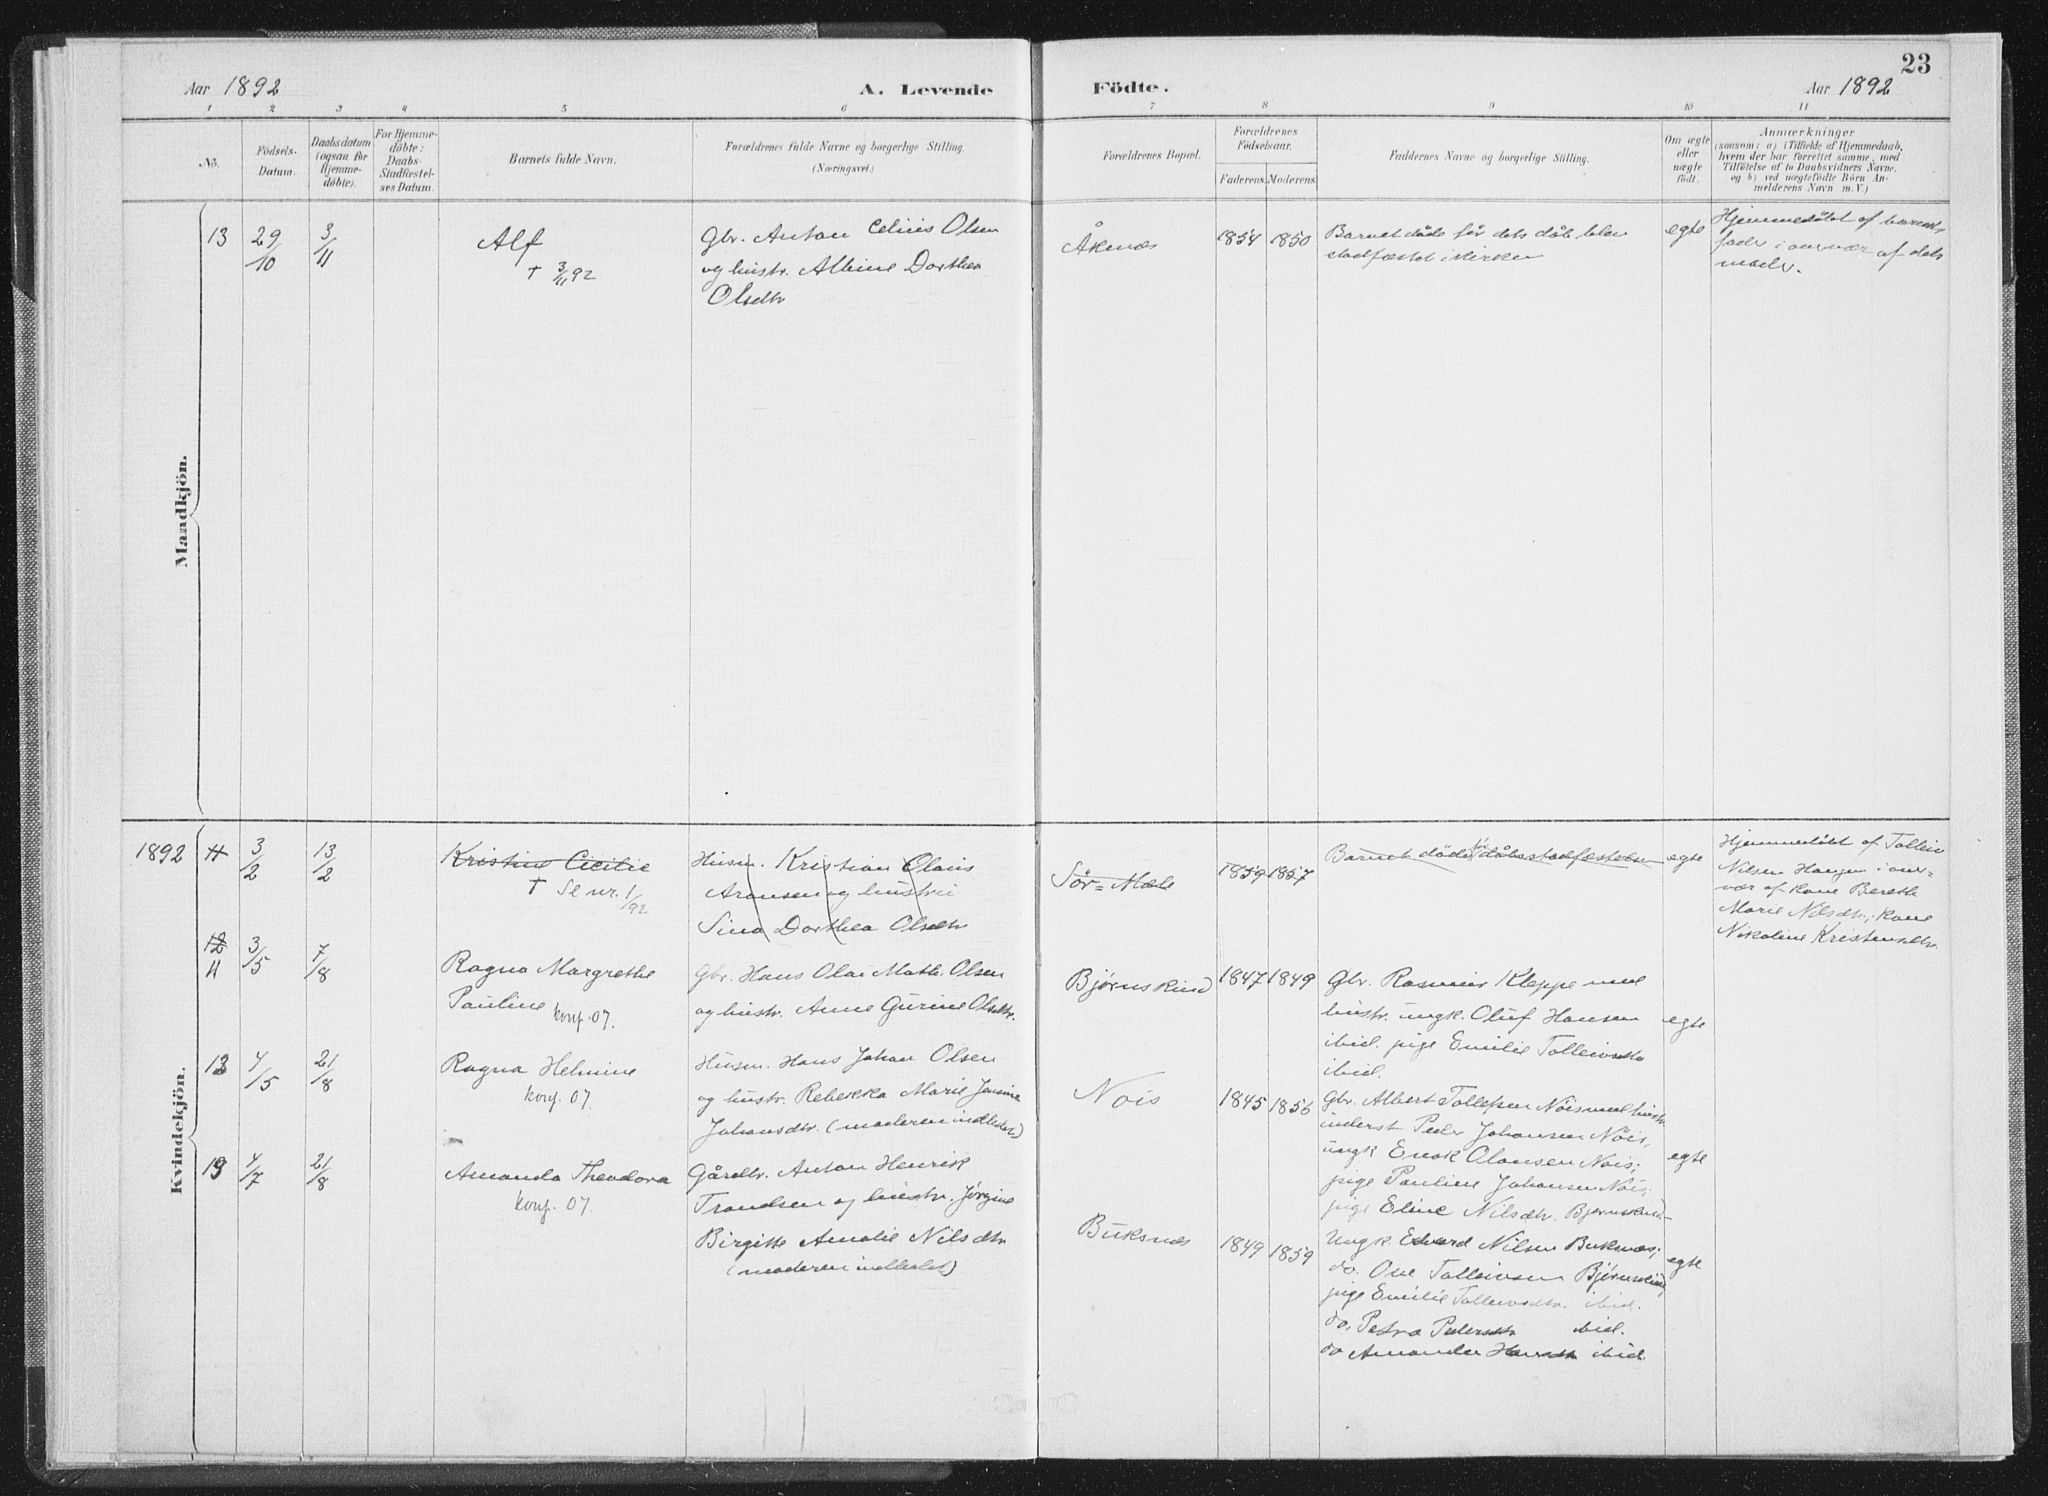 23
Aar 1892
A. Levende
Födte.
Aar 1892
1 2 3 4 5 6 7 8 9 10 11
No.
Födsels-
Datum.
Daabsdatum
(ogsaa for
Hjemme-
døbte).
For Hjemme-
døbte:
Daabs-
Stadfæstel-
ses Datum.
Barnets fulde Navn.
Forældrenes fulde Navne og borgerlige Stilling.
(Næringsvei.)
Forældrenes Bopæl.
Forældrenes
Födselsaar.
Faderens. Moderens.
Faddernes Navne og borgerlige Stilling.
Om ægte
eller
uægte
født.
Anmærkninger
(saasom: a) i Tilfælde af Hjemmedaab,
hvem der har forrettet samme, med
Tilföielse af to Daabsvidners Navne,
og b) ved uægtefödte Börn An-
melderens Navn m. V.)
Mandkjön.
13 29/10 3/11
Alf
† 3/11 92
Gbr. Anton Celius Olsen
og hustr. Albine Dorthea
Olsdtr
Åknæs
1854 1850
Barnet døde før dets dåb blev
stadfæstet i kirken
egte
Hjemmedøbt af barnets
fader i overvær af dets
moder.
Kvindekjön.
1892 11 3/2 13/2
Kristine Cecilie
† Se nr. 1/92
Husm. Kristian Olais
Aronsen og hustru
Sina Dorthea Olsdtr
Sör-Mæle
1859 1857
Barnet döde för dåbsstadfæstelse
egte
Hjemmedøbt af Tolleiv
Nilsen Haugen i over-
vær af kone Bereth
Marie Nilsdtr, kone
Nikoline Kristensdtr.
12
11 3/5 7/8
Ragna Margrethe
Pauline konf. 07.
Gbr. Hans Olai Math. Olsen
og hustr. Anne Gurine Olsdtr.
Bjørnskind
1847 1849
Gbr. Rasmus Kleppe med
hustr. ungk. Oluf Hansen
ibid. pige Emilie Tolleivsdtr
ibid.
egte
12 4/5 21/8
Ragna Helmine
konf. 07.
Husm. Hans Johan Olsen
og hustr. Rebekka Marie Jensine
Johansdtr. (moderen indledet)
Nöis
1845 1856
Gbr. Albert Tollefsen Nöis med hustr
inderst Peder Johansen Nöis,
ungk Enok Olausen Nöis;
pige Pauline Johansen Nöis;
pige Eline Nilsdtr. Bjørnskind
egte
13 4/7 21/8
Amanda Theodora
konf. 07.
Gårdbr. Anton Henrik
Trondsen og hustr. Jørgine
Birgitte Amalie Nilsdtr
(moderen indledet)
Buksnæs
1849 1859
Ungk. Edvard Nilsen Buksnæs;
do. Ove Tolleivsen Bjørnskind,
pige Emilie Tolleivsdtr. ibid.
do. Petra Pedersdtr ibid.
do Amanda Hansdtr ibid.
egte